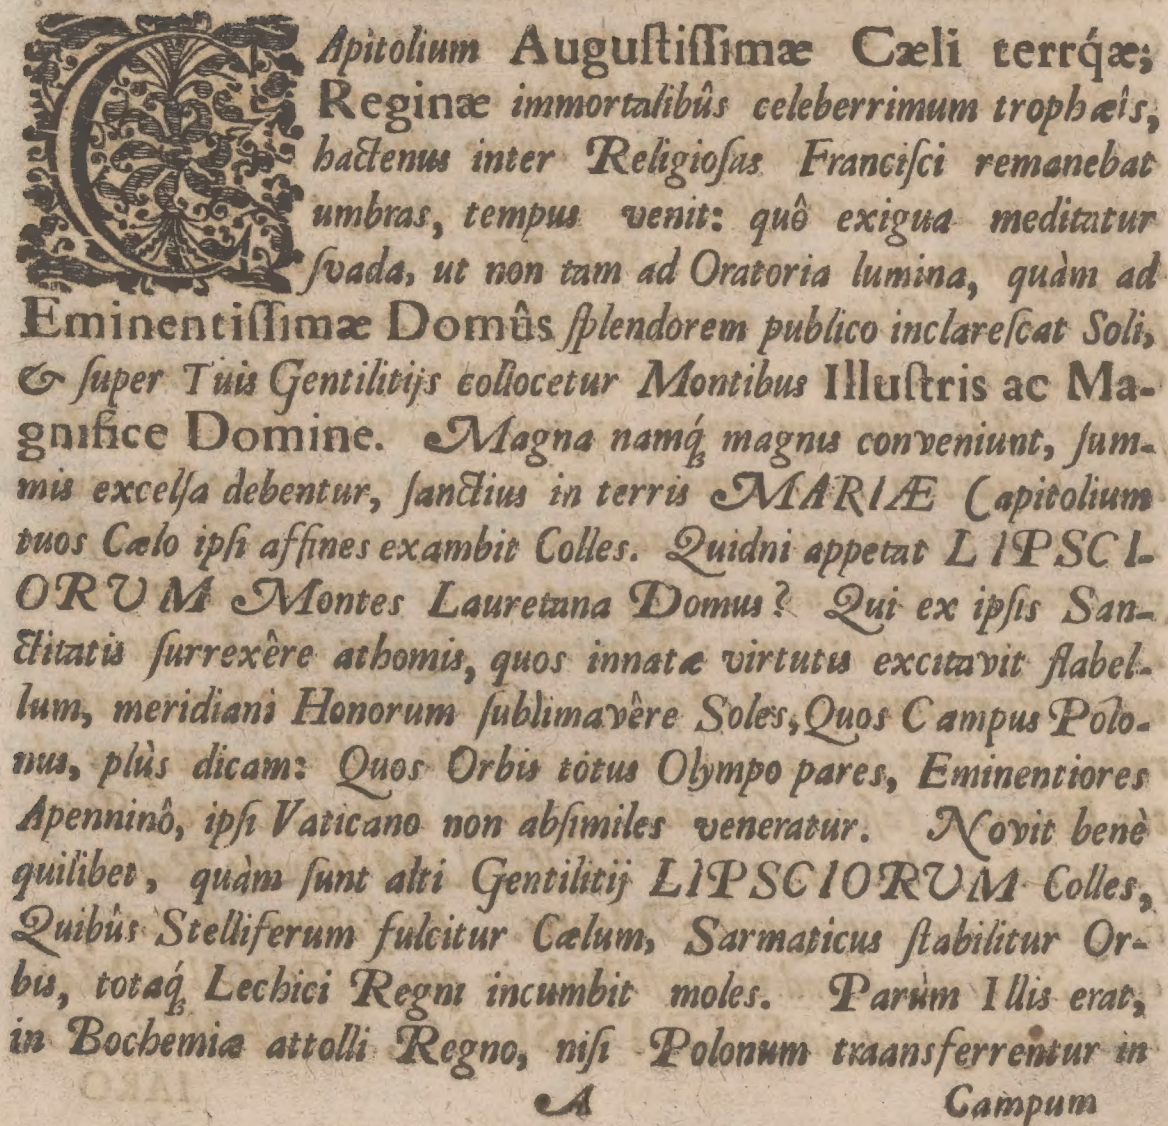 CApitolium Augustissimæ Cæli terrq́æ;
Reginæ immortalibûs celeberrimum trophæîs,
hactenus inter Religiosas Francisci remanebat
umbras, tempus venit: quô exigua meditatur
svada, ut non tam ad Oratoria lumina, quàm ad
Eminentissimæ Domûs splendorem publico inclarescat Soli,
& super Tuis Gentilitijs collocetur Montibus Illustris ac Ma-
gnifice Domine. Magna namq́; magnis conveniunt, sum-
mis excelsa debentur, sanctius in terris MARIÆ Capitolium
tuos Cælo ipsi affines exambit Colles. Quidni appetat LIPSCI-
ORUM Montes Lauretana Domus? Qui ex ipsis San-
ctitatis surrexêre athomis, quos innatæ virtutis excitavit flabel-
lum, meridiani Honorum sublimavêre Soles, Quos Campus Polo-
nus, plùs dicam: Quos Orbis totus Olympo pares, Eminentiores
Apenninô, ipsi Vaticano non absimiles veneratur. Novit benè
quilibet, quàm sunt alti Gentilitij LIPSCIORUM Colles,
Quibûs Stelliferum fulcitur Cælum, Sarmaticus stabilitur Or-
bis, totaq́; Lechici Regni incumbit moles. Parùm Illis erat,
in Bochemiæ attolli Regno, nisi Polonum traansferrentur in
A Campum